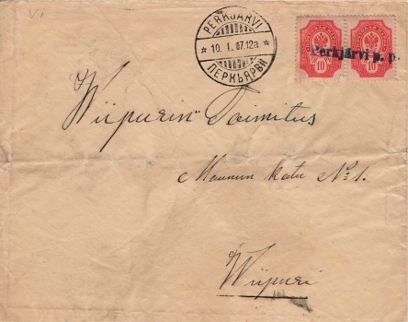 PERKJÄRVI
* 10. I. 07.12a *
ПЕРКЪЯРВИ
10 10
Perkjärvi p. p.
Wiipurin Toimitus
Maunun katu № 1.
Wiipuri